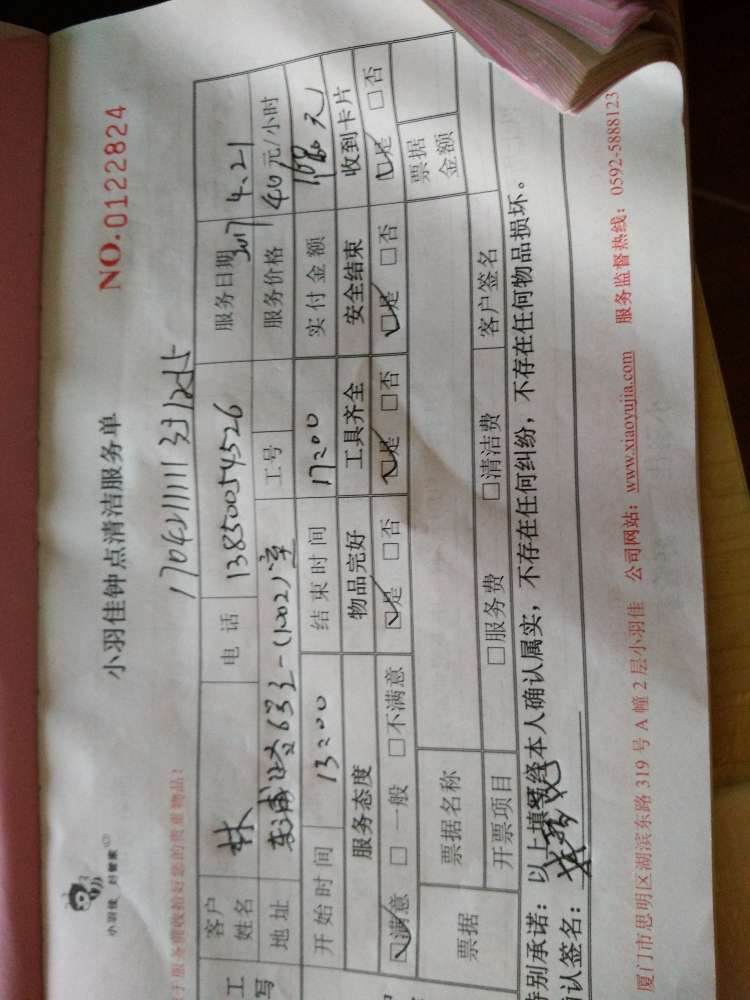 小羽佳 好管家
小羽佳钟点清洁服务单
NO.0122824
服务前收拾好您的贵重物品!
客户姓名 林 电话 13850054526 服务日期 2017 4.21
地址 工号 服务价格 40元/小时
开始时间 13:00 结束时间 17:00 实付金额 元
服务态度 物品完好 工具齐全 安全结束 收到卡片
☑满意 □一般 □不满意 ☑是 □否 ☑是 □否 ☑是 □否 ☑是 □否
票据 票据名称 票据金额
开票项目 □服务费 □清洁费 客户签名
特别承诺:以上填写经本人确认属实,不存在任何纠纷,不存在任何物品损坏。
认签名:
厦门市思明区湖滨东路 319 号 A 幢 2 层小羽佳 公司网站:www.xiaoyujia.com 服务监督热线:0592-5888123